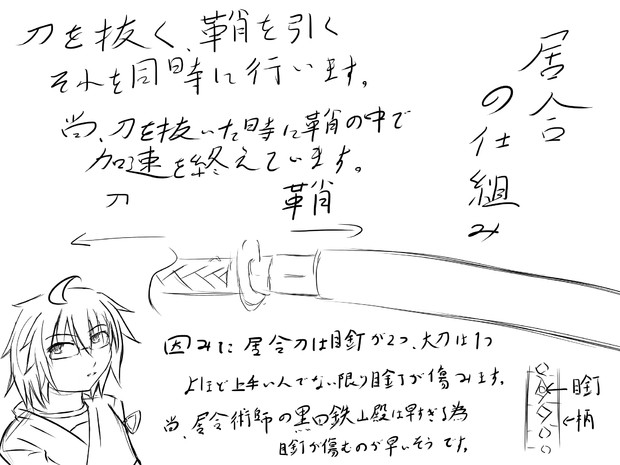 居合
の仕組み
刀を抜く、鞘を引く
それを同時に行います。
尚、刀を抜いた時に鞘の中で
加速を終えています。
刀
鞘
因みに居合刀は目釘が2つ、大刀は1つ
よほど上手い人でない限り目釘が傷みます。
尚、居合術師の黒田鉄山殿は早すぎる為
目釘が傷むのが早いそうです。
目釘
柄